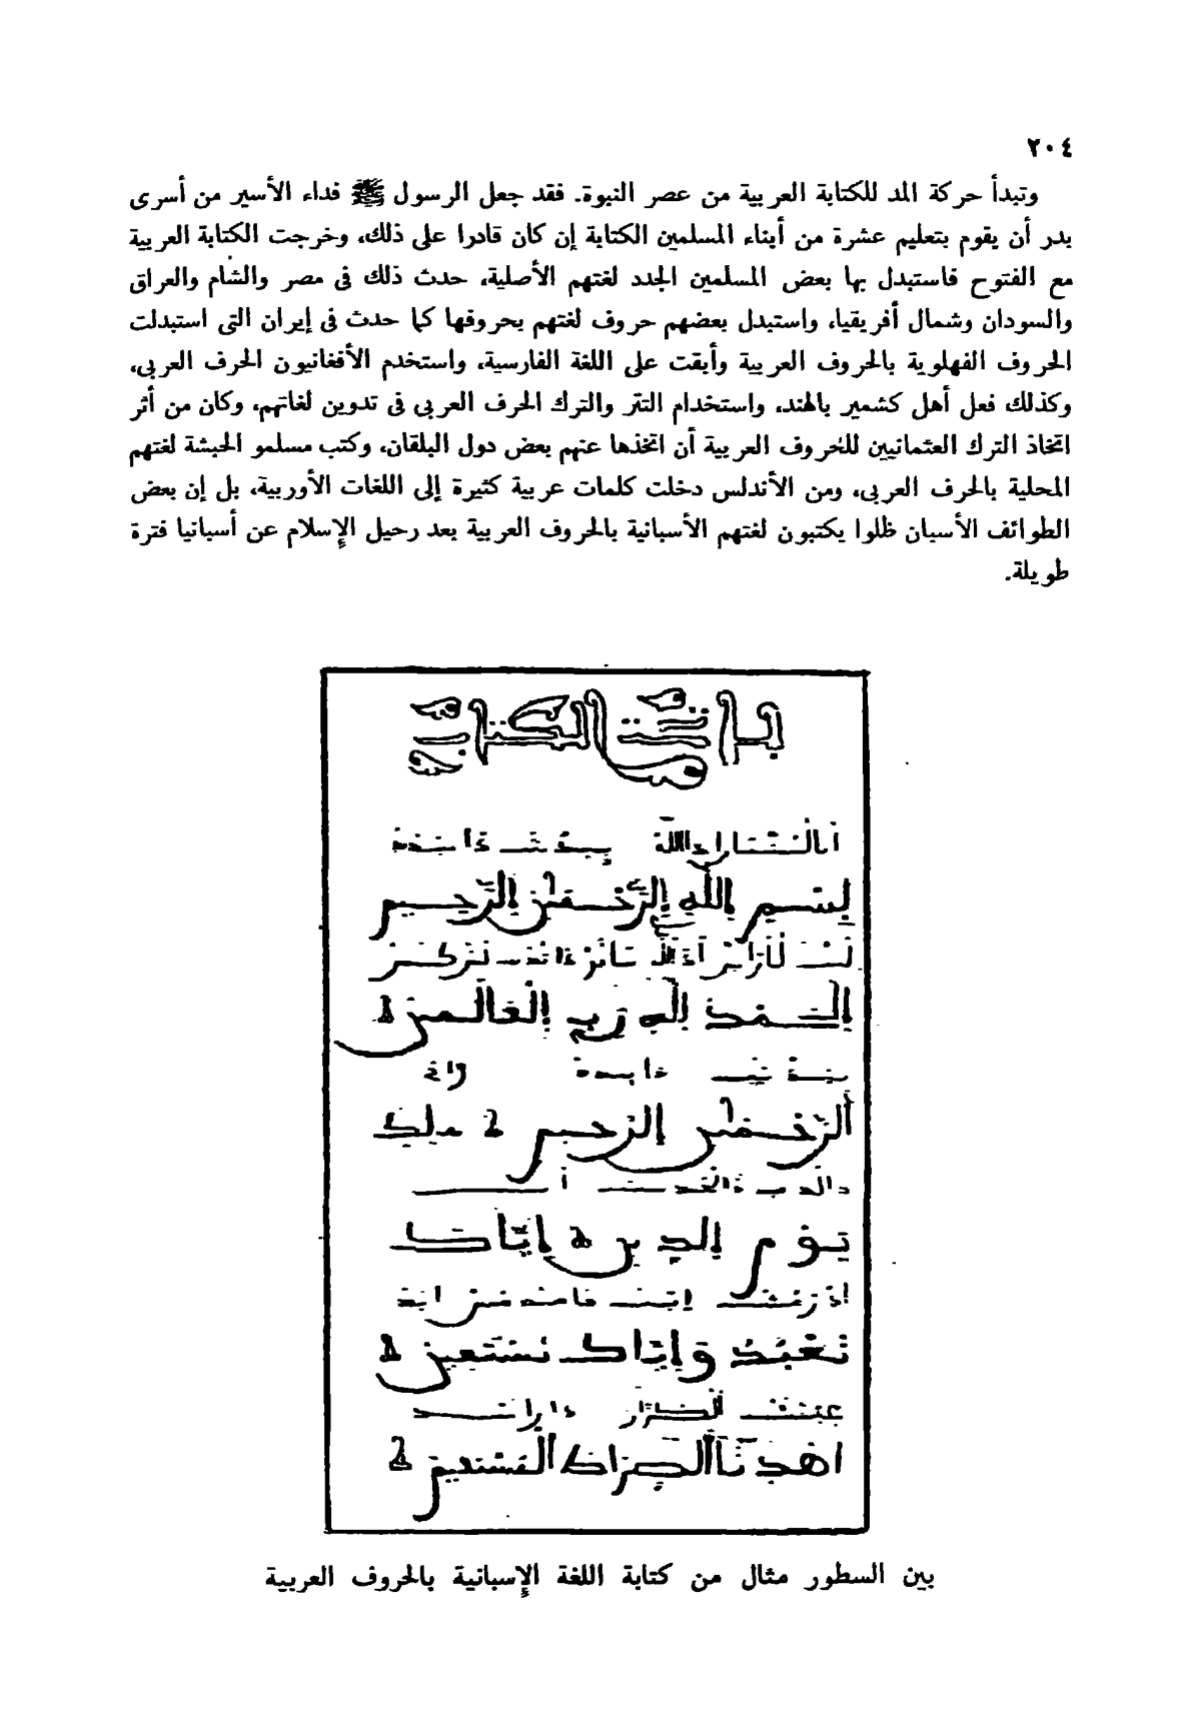 ٢٠٤
وتبدأ حركة المد للكتابة العربية من عصر النبوة. فقد جعل الرسول ﷺ فداء الأسير من أسرى
بدر أن يقوم بتعليم عشرة من أبناء المسلمين الكتابة إن كان قادرا على ذلك، وخرجت الكتابة العربية
مع الفتوح فاستبدل بها بعض المسلمين الجدد لغتهم الأصلية، حدث ذلك فى مصر والشام والعراق
والسودان وشمال أفريقيا، واستبدل بعضهم حروف لغتهم بحروفها كما حدث فى إيران التى استبدلت
الحروف الفهلوية بالحروف العربية وأبقت على اللغة الفارسية، واستخدم الأفغانيون الحرف العربى،
وكذلك فعل أهل كشمير بالهند، واستخدام التتر والترك الحرف العربى فى تدوين لغاتهم، وكان من أثر
اتخاذ الترك العثمانيين للحروف العربية أن اتخذها عنهم بعض دول البلقان، وكتب مسلمو الحبشة لغتهم
المحلية بالحرف العربى، ومن الأندلس دخلت كلمات عربية كثيرة إلى اللغات الأوربية، بل إن بعض
الطوائف الأسبان ظلوا يكتبون لغتهم الأسبانية بالحروف العربية بعد رحيل الإسلام عن أسبانيا فترة
طويلة.
فاتحة الكتاب
بِسْمِ اللَّهِ الرَّحْمَٰنِ الرَّحِيمِ
الْحَمْدُ لِلَّهِ رَبِّ الْعَالَمِينَ
الرَّحْمَٰنِ الرَّحِيمِ مَلِكِ
يَوْمِ الدِّينِ إِيَّاكَ
نَعْبُدُ وَإِيَّاكَ نَسْتَعِينُ
اهْدِنَا الصِّرَاطَ الْمُسْتَقِيمَ
بين السطور مثال من كتابة اللغة الإسبانية بالحروف العربية